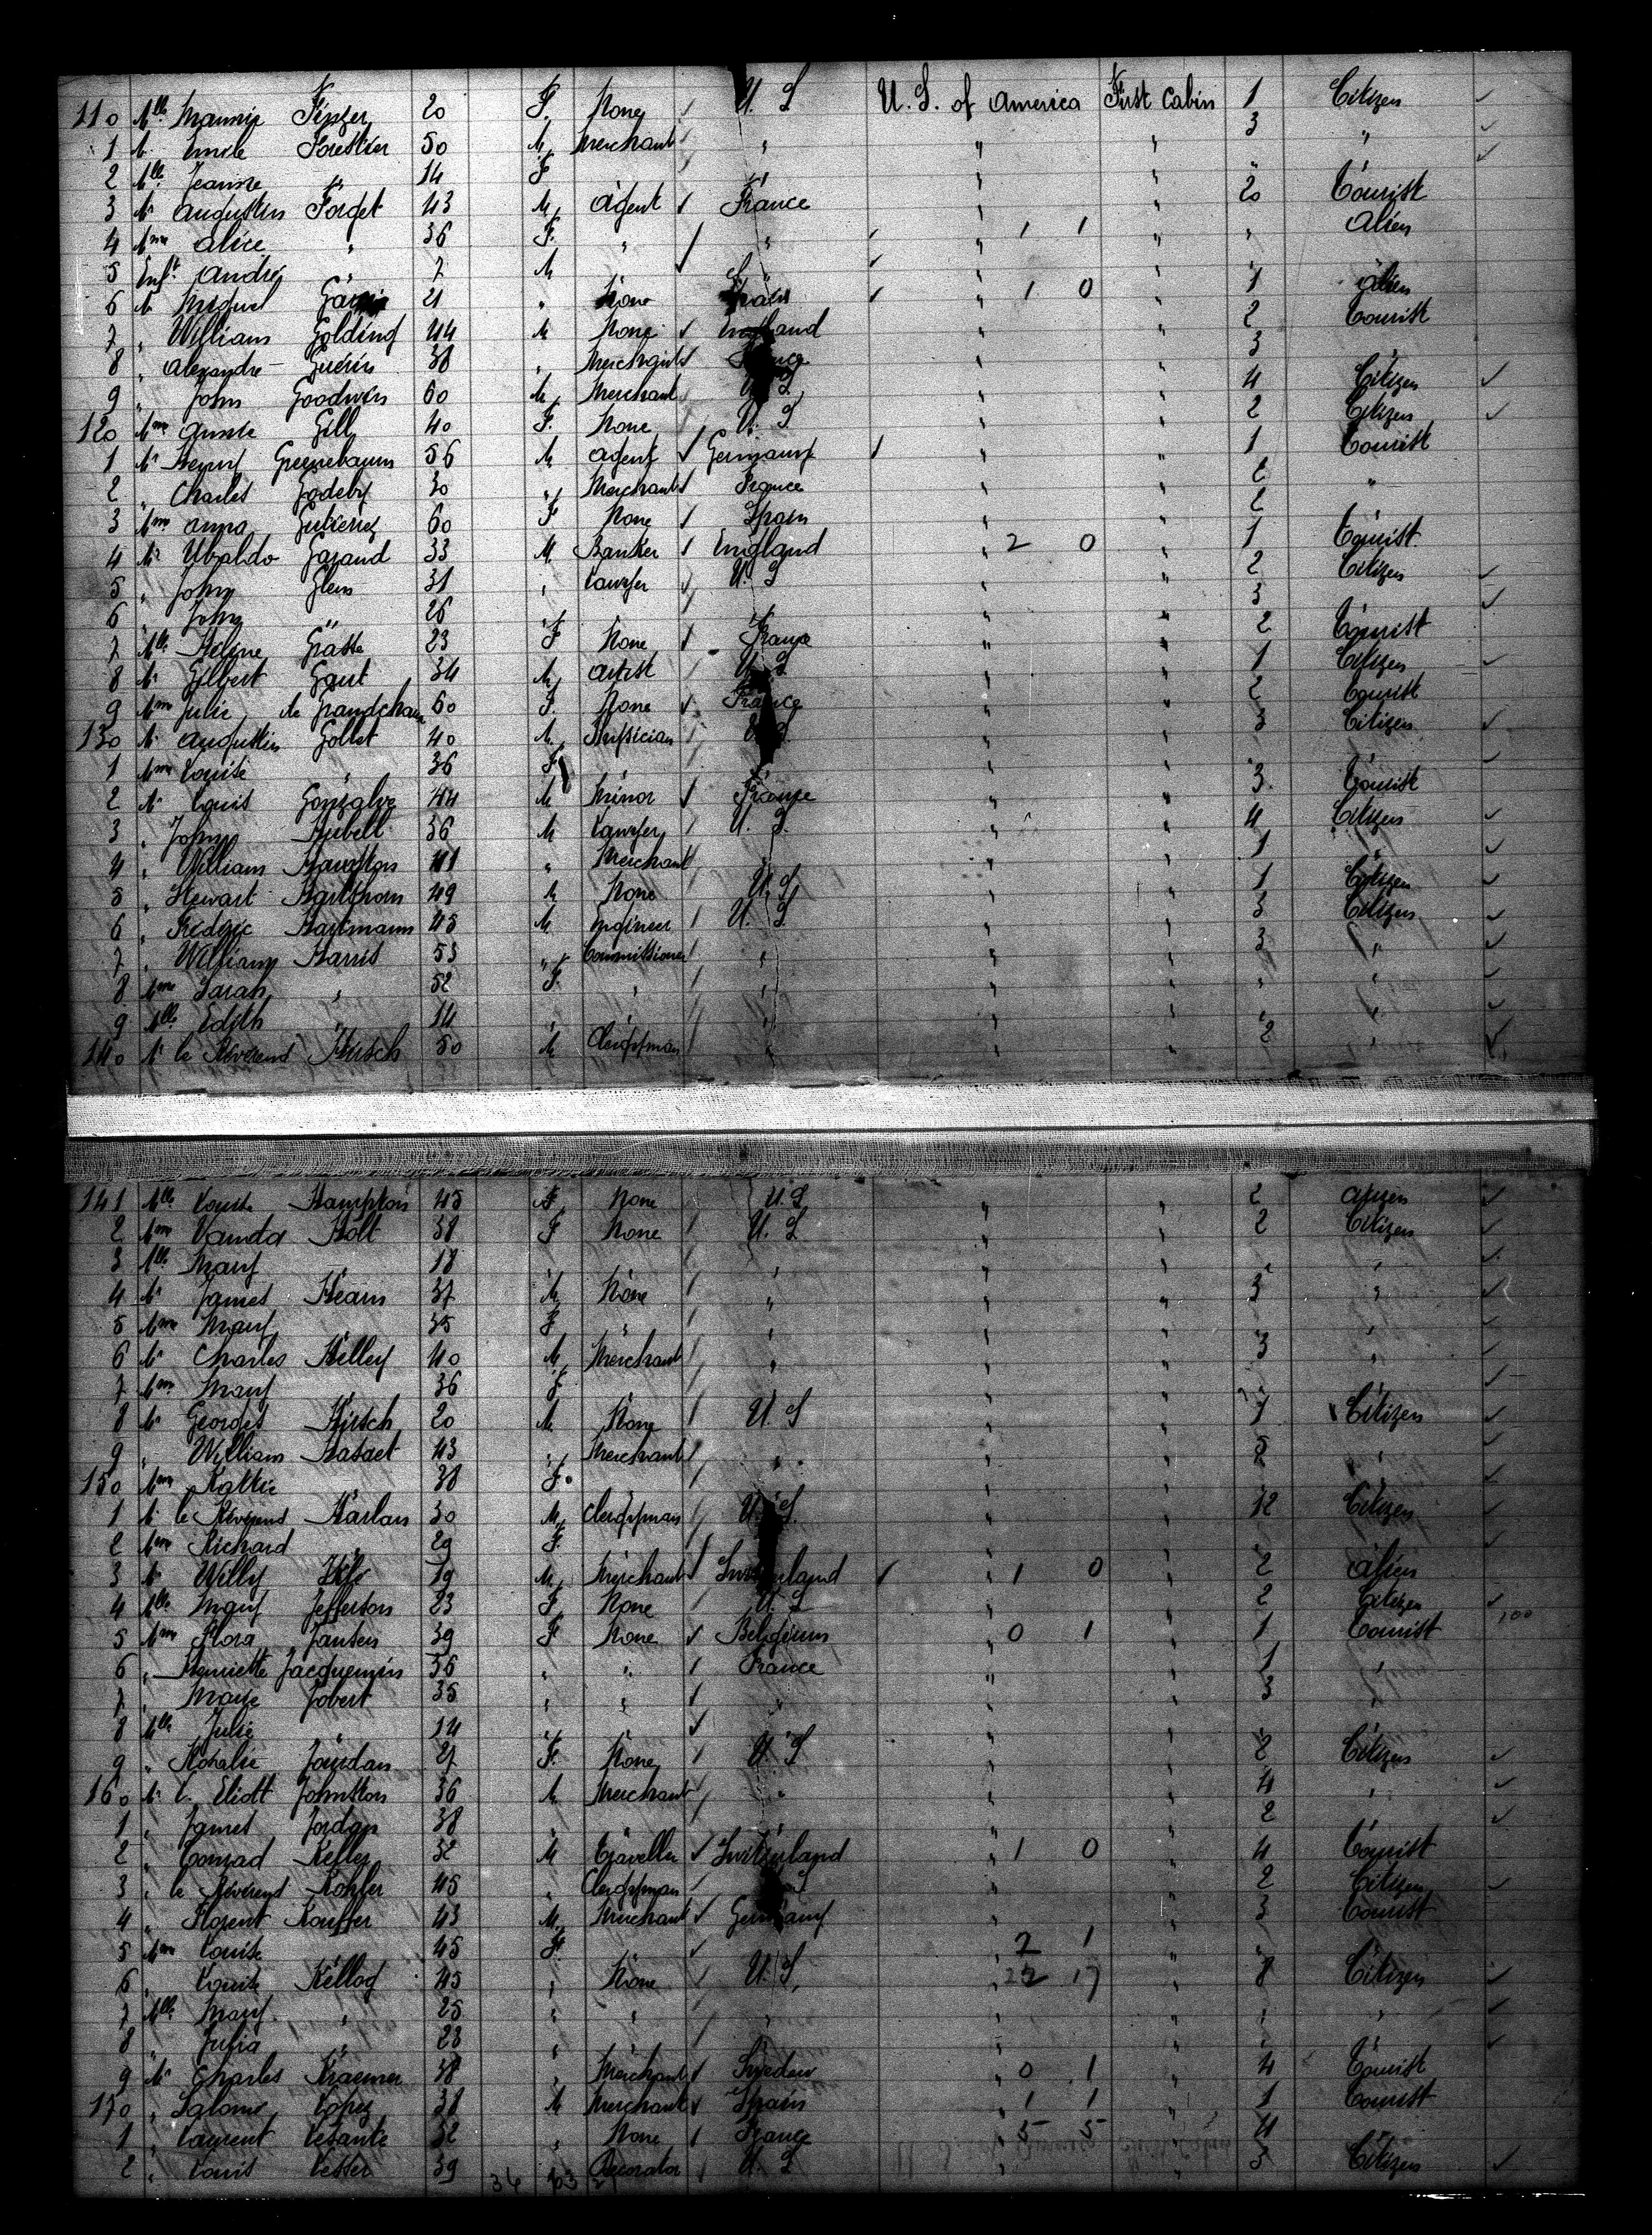 110 Mlle Mannie Finger 20 F. None U. S U. S. of America First Cabin 1 Citizen
1 M. Emile Forestier 50 M, Merchant " " " 3 "
2 Mlle Jeanne " 14 F " " " "
3 Mr Augustin Forget 43 M, Agent France " " 20 Tourist
4 Mme Alice " 36 F. " " " 1 1 " " Alien
5 Enft. André " 7 M " " "
6 M. Miguel 21 " None Spain " 1 0 1 Alien
7 " William Golding 44 M None England " " 2 Tourist
8 " Alexandre Guérin 38 " Merchant France " " 3 "
9 " John Goodwin 60 M, Merchant U. S " " 4 Citizen
120 Mme Annie Gill 40 F. None U. S " " 2 Citizen
1 Mr Henry Greenebaum 56 M, Agent Germany " " 1 Tourist
2 " Charles Godeby 30 " Merchant France " " 2 "
3 Mme Anna Gutierrez 60 F None Spain " " 2
4 Mr Ubaldo 33 M. Banker England 2 0 " 1 Tourist
5 " John Glen 31 " Lawyer U. S " " 2 Citizen
6 " John " 26 " " " 3
7 Mlle Hélène Gratte 23 F None France " " 2 Tourist
8 Mr Gilbert Gaut 34 M, Artist U. S " " 1 Citizen
9 Mme Julie de Grandchamp 60 F. None France " " 2 Tourist
130 M. Augustin Gollet 40 M, Physician U. S. " " 3 Citizen
1 Mme Louise " 36 F " "
2 Mr Louis Gonzalve 44 M Minor France " " 3 Tourist
3 " John Hubell 36 M Lawyer, U. S. " " 4 Citizen
4 " William Hampton 41 " Merchant " " " 1 "
5 " Stewart Harthorn 49 M None U. S " " 1 Citizen
6 " Frédéric Hartmann 45 M Engineer U. S " " 3 Citizen
7 " William Harris 53 " Commissioner " " " 3 "
8 Mme Sarah " 52 F. " " " " " "
9 Mlle Edith " 14 " " " " " "
140 Mr le Révérend Hirsch 50 M Clergyman " " 2 "
141 Mlle Louise Hampton 45 F, None U. S " " 2 Citizen
2 Mme Vanda Holt 38 F None U. S " " 2 Citizen
3 Mlle Mary " 18 " " " " " "
4 Mr James Hearn 37 M, None " " " 3 "
5 Mme Mary " 35 F " " " " "
6 Mr Charles Helley 40 M, Merchant " " " 3 "
7 Mme Mary " 36 F " "
8 Mr Georges Hirsch 20 M, None U. S " " 1 Citizen
9 " William 43 " Merchant " " " 5 "
150 Mme Kattie " 38 F. " " "
1 M. le Révérend Harlan 30 M, Clergyman U. S. " " 12 Citizen
2 Mme Richard " 29 F. " "
3 Mr Willy 19 M, Merchant Switzerland " 1 0 " 2 Alien
4 Mlle Mary Jefferson 23 F, None U. S " " 2 Citizen
5 Mme Flora Jansen 39 F None Belgium " 0 1 " 1 Tourist
6 " Henriette Jacquemin 36 " " France " " 1 "
7 " Marie Jobert 35 " " " " " 3 "
8 Mlle Julie " 14 " " "
9 " Rosalie Jourdan 27 F. None U. S " " 2 Citizen
160 Mr C. Eliott Johnston 36 M, Merchant " " " 4 "
1 " James Jordan 38 " " " 2
2 " Conrad Keller 32 M Traveller Switzerland " 1 0 " 4 Tourist
3 " le Révérend Kohler 45 " Clergyman U. S " " 2 Citizen
4 " Florent Kouffer 43 M, Merchant Germany " " 3 Tourist
5 Mme Louise " 45 F. 2 1 " "
6 " Louise Kellog 45 " None U. S, 17 " 8 Citizen
7 Mlle Mary " 25 " " " " " " "
8 " Julia " 23 " " " "
9 Mr Charles Kraemer 38 " Merchant Sweden " 0 1 " 4 Tourist
170 " Salomé Lopez 38 M Merchant Spain " 1 1 " 1 Tourist
1 " Laurent Lesante 32 " None France 5 5 " 4
2 " Louis Lesser 39 Decorator U. S " " 3 Citizen